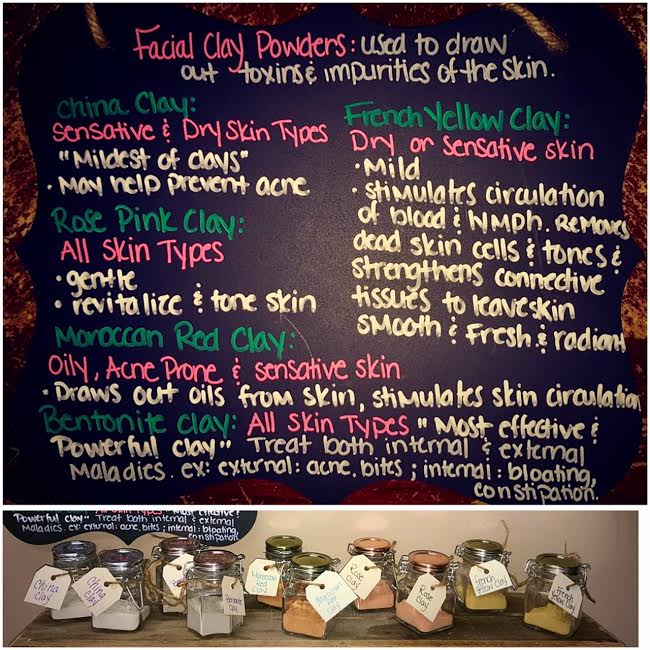 Facial Clay Powders: used to draw
out toxins & impurities of the skin.
China Clay:
Sensative & Dry Skin Types
"Mildest of clays"
• May help prevent acne
Rose Pink Clay:
All Skin Types
• gentle
• revitalize & tone skin
French Yellow Clay:
Dry or sensative skin
• Mild
• stimulates circulation
of blood & NMPH. Removes
dead skin cells & tones &
strengthens connective
tissues to leave skin
smooth & Fresh & radiant
Moroccan Red Clay:
Oily, Acne Prone & sensative skin
• Draws out oils from skin, stimulates skin circulation
Bentonite clay: All Skin Types "Most effective &
Powerful clay" Treat both internal & external
Maladies. ex: external: acne, bites; internal: bloating,
constipation.
Powerful clay" Treat both internal & external
Maladies. ex: external: acne, bites; internal: bloating,
constipation
China Clay
China Clay
Bentonite Clay
Moroccan Red Clay
Moroccan Red Clay
Rose Clay
Rose Clay
French Yellow Clay
French Yellow Clay